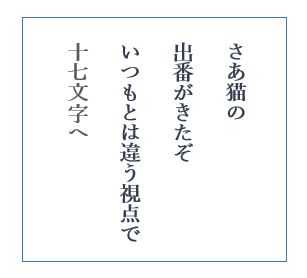 さあ猫の
出番がきたぞ
いつもとは違う視点で
十七文字へ